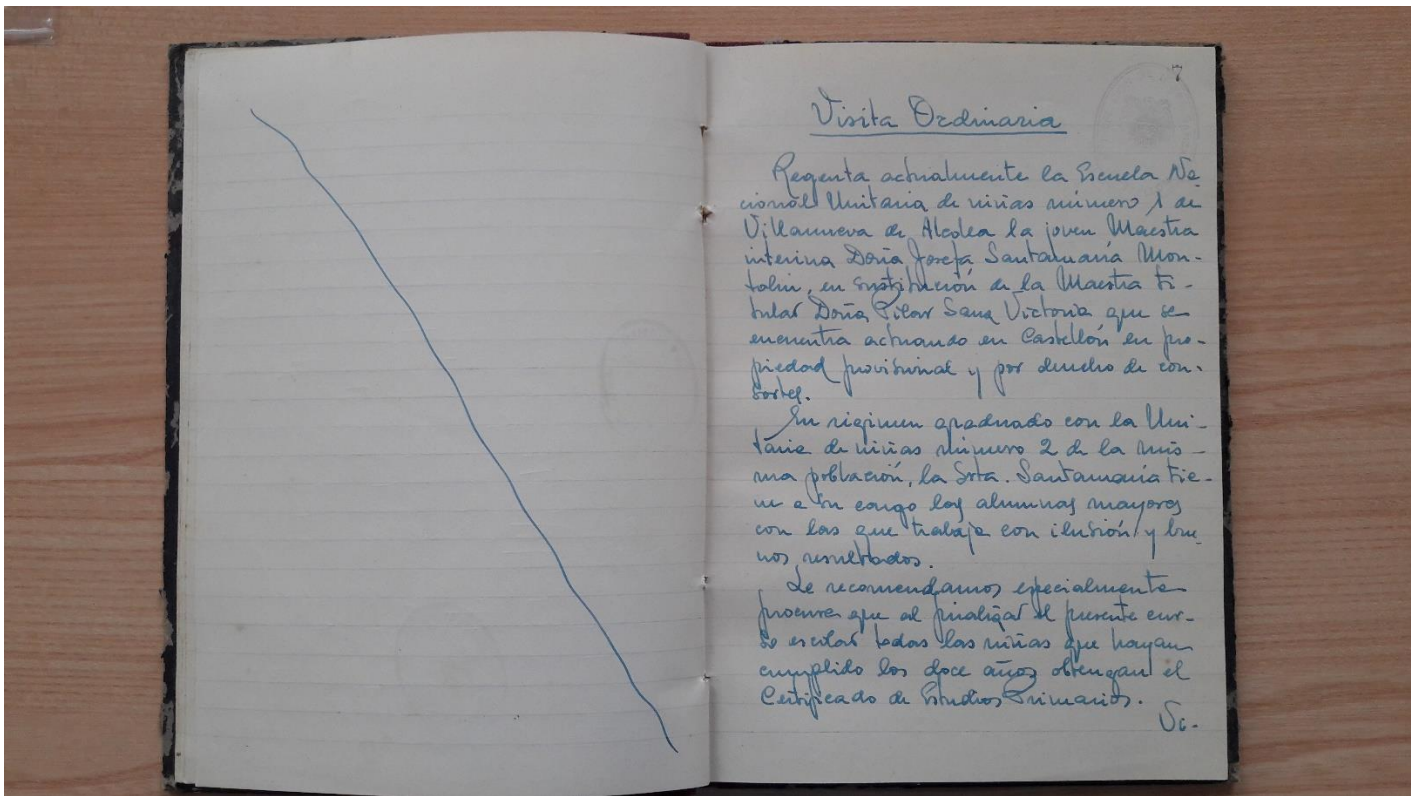 7
Visita Ordinaria
Regenta actualmente la Escuela Na-
cional Unitaria de niñas número 1 de
Villanueva de Alcolea la joven Maestra
interina Doña Josefa Santamaría Mon-
toliu, en sustitución de la Maestra ti-
tular Doña Pilar Sanz Victoria que se
encuentra actuando en Castellón en pro-
piedad provisional y por derecho de con-
sortes.
En régimen graduado con la Uni-
taria de niñas número 2 de la mis-
ma población, la Srta. Santamaría tie-
ne a su cargo las alumnas mayores
con las que trabaja con ilusión y bue-
nos resultados.
Le recomendamos especialmente
procure que al finalizar el presente cur-
so escolar todas las niñas que hayan
cumplido los doce años obtengan el
Certificado de Estudios Primarios.